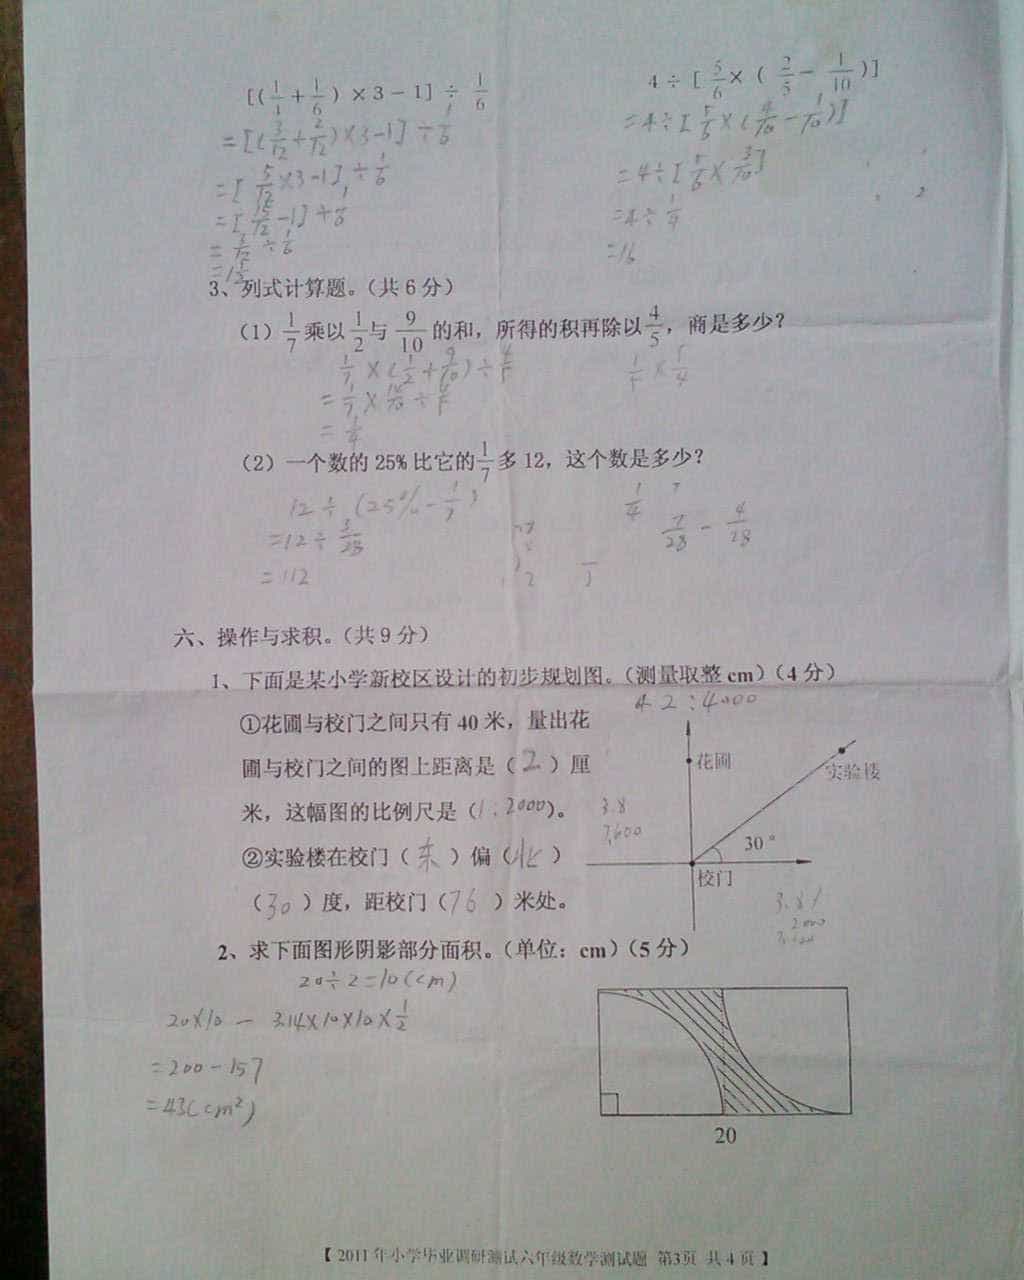 [(1/4+1/6)×3-1]÷1/6
=[(3/12+2/12)×3-1]÷1/6
=[5/12×3-1]÷1/6
=[15/12-1]÷1/6
=3/12÷1/6
4÷[5/6×(2/5-1/10)]
=4÷[5/6×(4/10-1/10)]
=4÷[5/6×3/10]
=4÷1/4
=16
3、列式计算题。(共6分)
(1)1/7乘以1/2与9/10的和,所得的积再除以4/5,商是多少?
1/7×(1/2+9/10)÷4/5
=1/7×14/10÷4/5
=1/4
1/5×5/4
(2)一个数的25%比它的1/7多12,这个数是多少?
12÷(25%-1/7)
=12÷3/28
=112
1/4
7/28-4/28
六、操作与求积。(共9分)
1、下面是某小学新校区设计的初步规划图。(测量取整cm)(4分)
2:4000
①花圃与校门之间只有40米,量出花
圃与校门之间的图上距离是(2)厘
米,这幅图的比例尺是(1:2000)。
②实验楼在校门(东)偏(北)
(30)度,距校门(76)米处。
花圃
实验楼
3.8
7600
30°
校门
2000
2、求下面图形阴影部分面积。(单位:cm)(5分)
20÷2=10(cm)
20×10-3.14×10×10×1/2
=200-157
=43(cm²)
20
【2011年小学毕业调研测试六年级数学测试题 第3页 共4页】